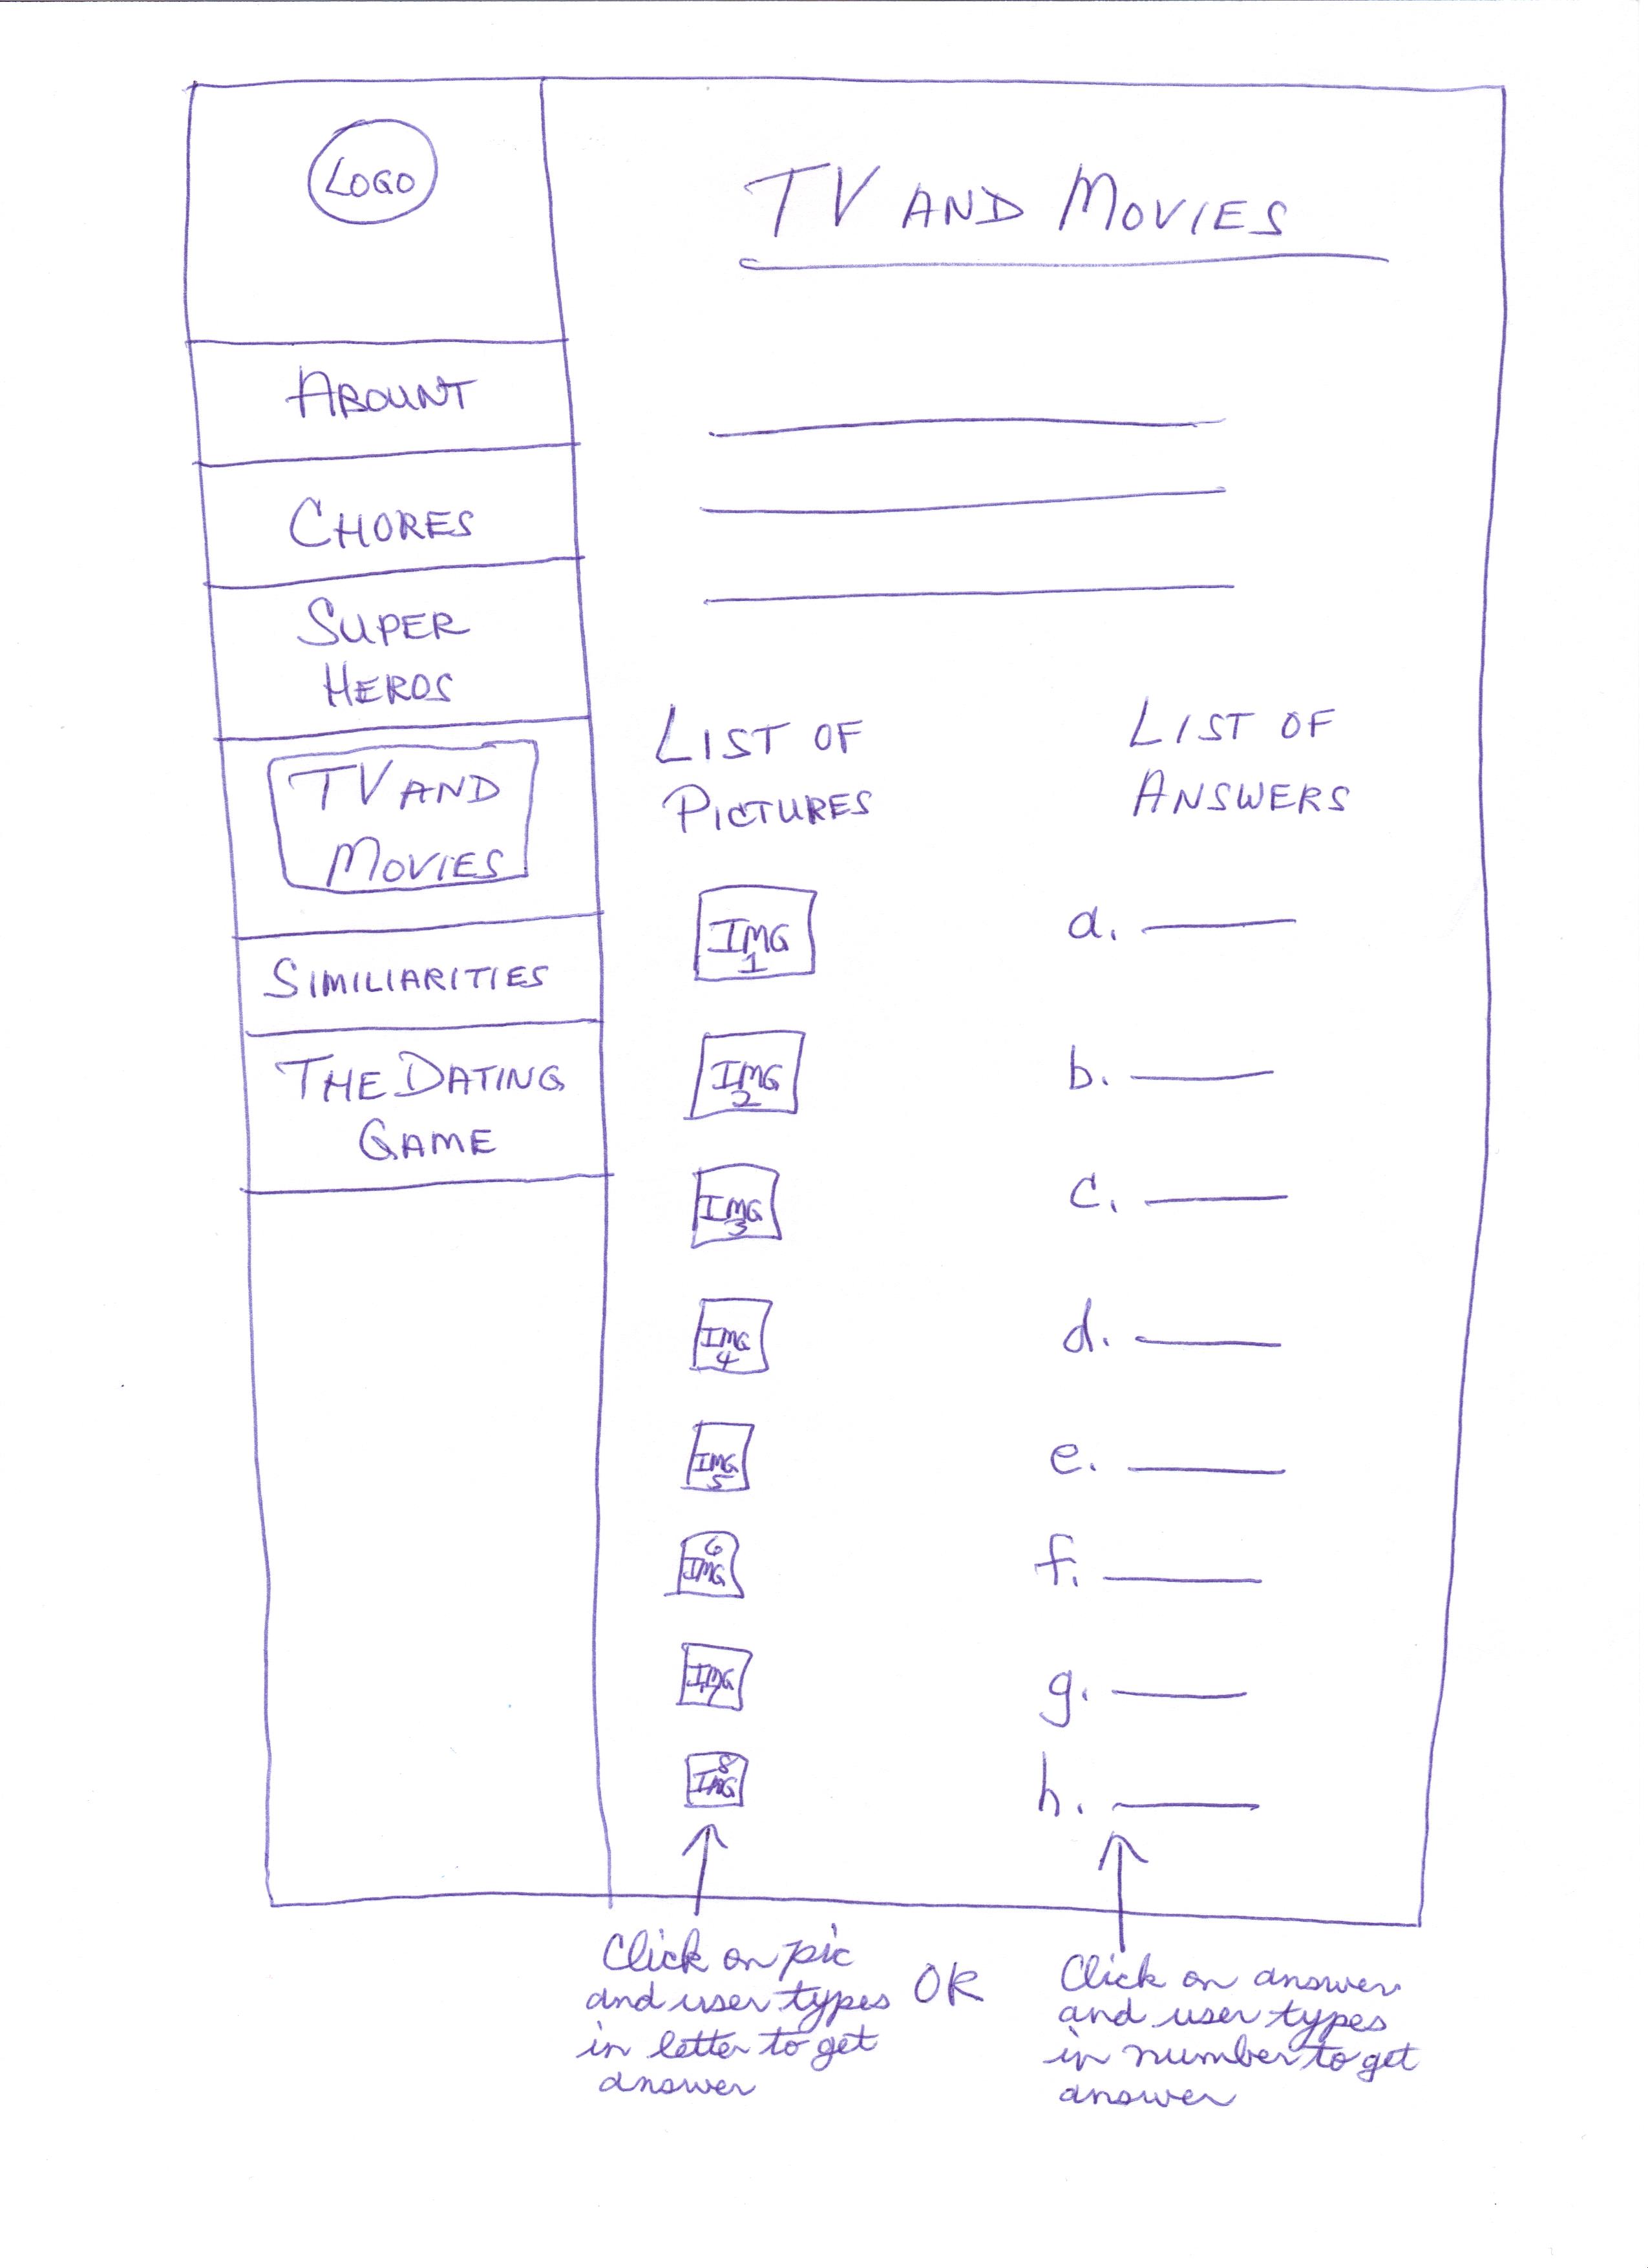 LOGO
TV AND MOVIES
ABOUNT
CHORES
SUPER
HEROS
TV AND
MOVIES
SIMILIARITIES
THE DATING
GAME
LIST OF
PICTURES
LIST OF
ANSWERS
IMG
1
a.
IMG
2
b.
IMG
3
c.
IMG
4
d.
IMG
5
e.
6
IMG
f.
IMG
7
g.
8
IMG
h.
Click on pic
and user types
in letter to get
answer
OR
Click on answer
and user types
in number to get
answer